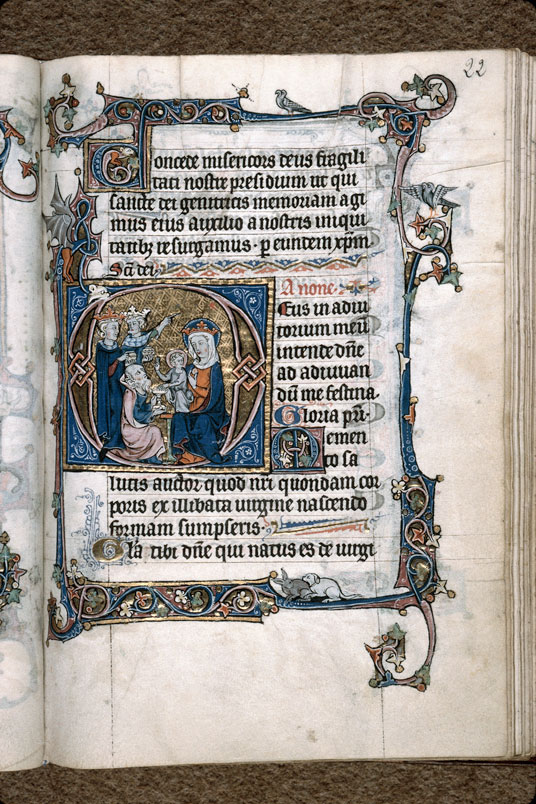 22
Concede misericors deus fragili
tati nostre presidium ut qui
sancte dei genitricis memoriam agi
mus eius auxilio a nostris iniqui
tatibꝫ resurgamus · p eundem xp̄m
Sc̄a dei
A none·
Deus in adiu
torium meū
intende dn̄e
ad adiuuan
dū me festina
Gloria pr̄i·
Memen
to sa
lutis auctor quod nr̄i quondam cor
poris ex illibata uirgine nascendo
formam sumpseris·
Gl̄a tibi dn̄e qui natus es de uirgi